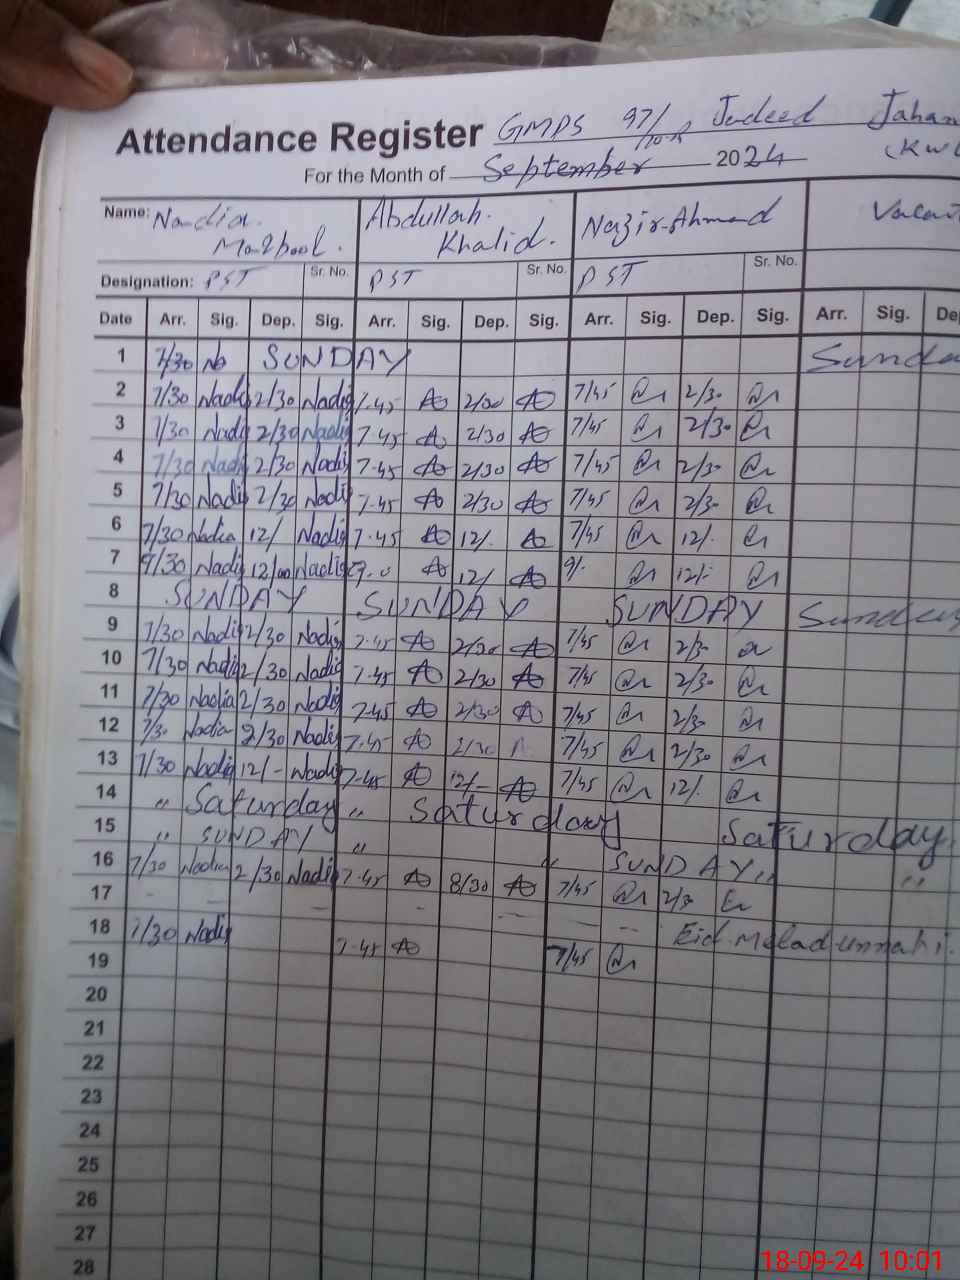 Attendance Register GMPS 97/10-R Jadeed Jahan
For the Month of September 2024 (KWL
Name: Nadia Maqbool. Abdullah Khalid. Nazir Ahmad Vacant
Designation: PST Sr. No. PST Sr. No. PST Sr. No.
Date Arr. Sig. Dep. Sig. Arr. Sig. Dep. Sig. Arr. Sig. Dep. Sig. Arr. Sig. De
1 7/30 Na SUNDAY Sunda
2 7/30 Nadi 2/30 Nadia 7.45 2/30 7/45 2/30
3 7/30 Nadi 2/30 Nadia 7.45 2/30 7/45 2/30
4 7/30 Nadi 2/30 Nadia 7.45 2/30 7/45 2/30
5 7/30 Nadia 2/30 Nadia 7.45 2/30 7/45 2/30
6 7/30 Nadia 12/ Nadia 7.45 12/. 7/45 12/.
7 9/30 Nadia 12/00 Nadia 9.0 12/ 9/- 12/-
8 SUNDAY SUNDAY SUNDAY Sunday
9 7/30 Nadia 2/30 Nadia 7.45 2/30 7/45 2/30
10 7/30 Nadia 2/30 Nadia 7.45 2/30 7/45 2/30
11 7/30 Nadia 2/30 Nadia 7.45 2/30 7/45 2/30
12 7/30 Nadia 2/30 Nadia 7.45 2/30 7/45 2/30
13 7/30 Nadia 12/- Nadia 7.45 12/- 7/45 12/.
14 " Saturday " Saturday Saturday
15 " SUNDAY " " SUNDAY " "
16 7/30 Nadia 2/30 Nadia 7.45 8/30 7/45 2/30
17 - - - - - - - - Eid Melad-un-nabi.
18 7/30 Nadia 7.45 7/45
19
20
21
22
23
24
25
26
27
28
18-09-24 10:01